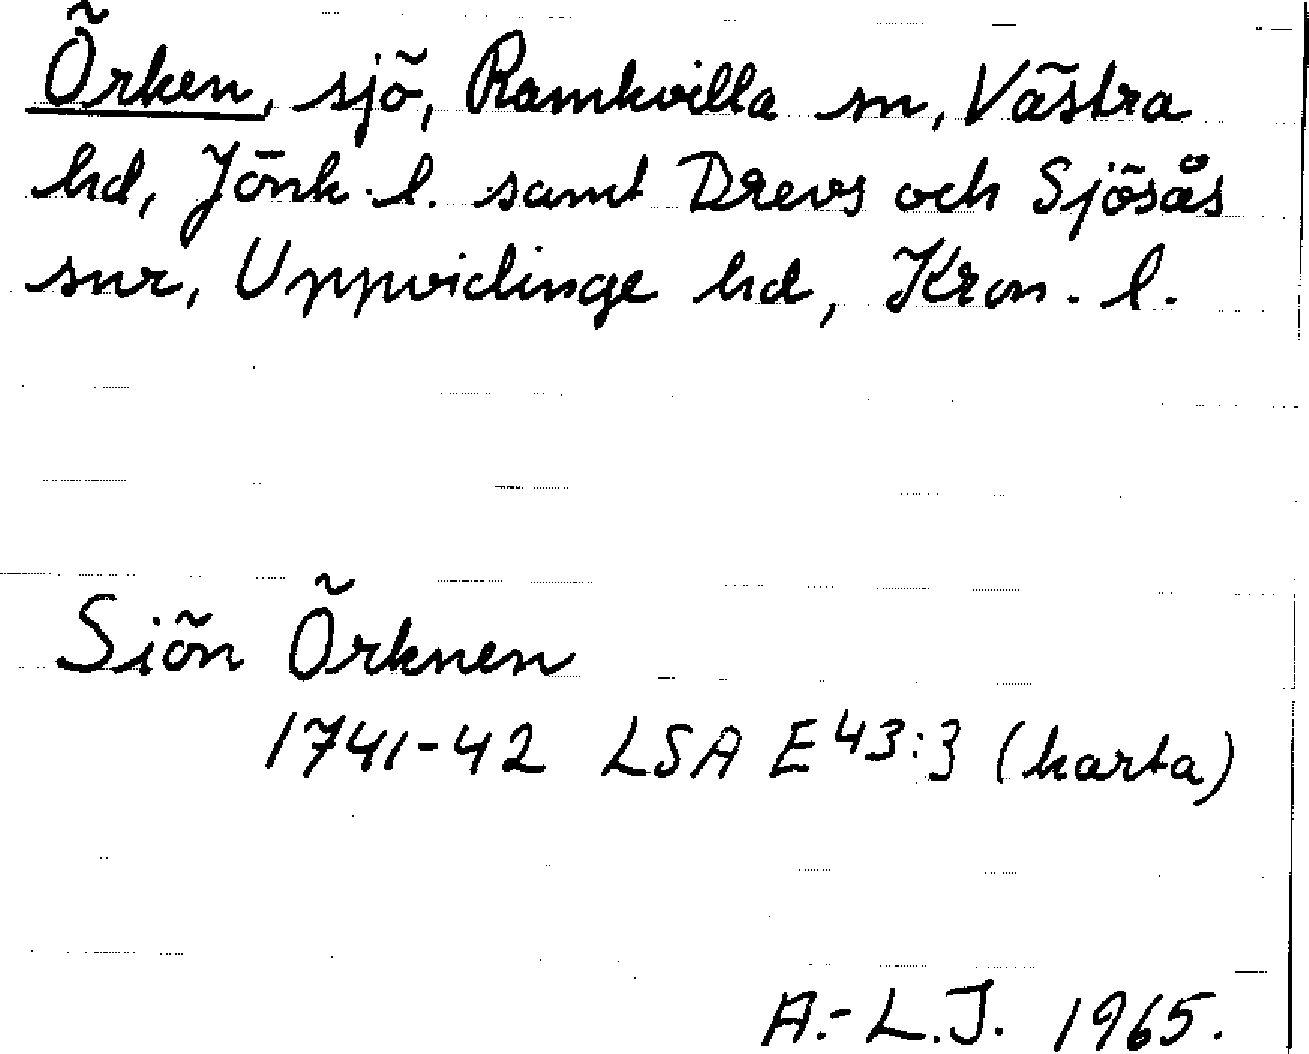 Örken, sjö, Ramkvilla sn, Västra
hd, Jönk. l. samt Drevs och Sjösås
snr, Uppvidinge hd, Kron. l.
Siön Örknen
1741-42 LSA E 43:3 (karta)
A.-L.J. 1965.